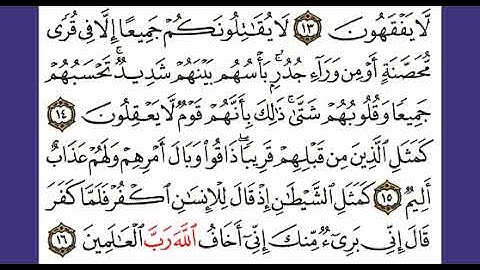 لَّا يَفْقَهُونَ ١٣ لَا يُقَٰتِلُونَكُمْ جَمِيعًا إِلَّا فِى قُرًى
مُّحَصَّنَةٍ أَوْ مِن وَرَآءِ جُدُرٍۭ ۚ بَأْسُهُم بَيْنَهُمْ شَدِيدٌ ۚ تَحْسَبُهُمْ
جَمِيعًا وَقُلُوبُهُمْ شَتَّىٰ ۚ ذَٰلِكَ بِأَنَّهُمْ قَوْمٌ لَّا يَعْقِلُونَ ١٤
كَمَثَلِ ٱلَّذِينَ مِن قَبْلِهِمْ قَرِيبًا ۖ ذَاقُوا۟ وَبَالَ أَمْرِهِمْ وَلَهُمْ عَذَابٌ
أَلِيمٌ ١٥ كَمَثَلِ ٱلشَّيْطَٰنِ إِذْ قَالَ لِلْإِنسَٰنِ ٱكْفُرْ فَلَمَّا كَفَرَ
قَالَ إِنِّى بَرِىٓءٌ مِّنكَ إِنِّىٓ أَخَافُ ٱللَّهَ رَبَّ ٱلْعَٰلَمِينَ ١٦